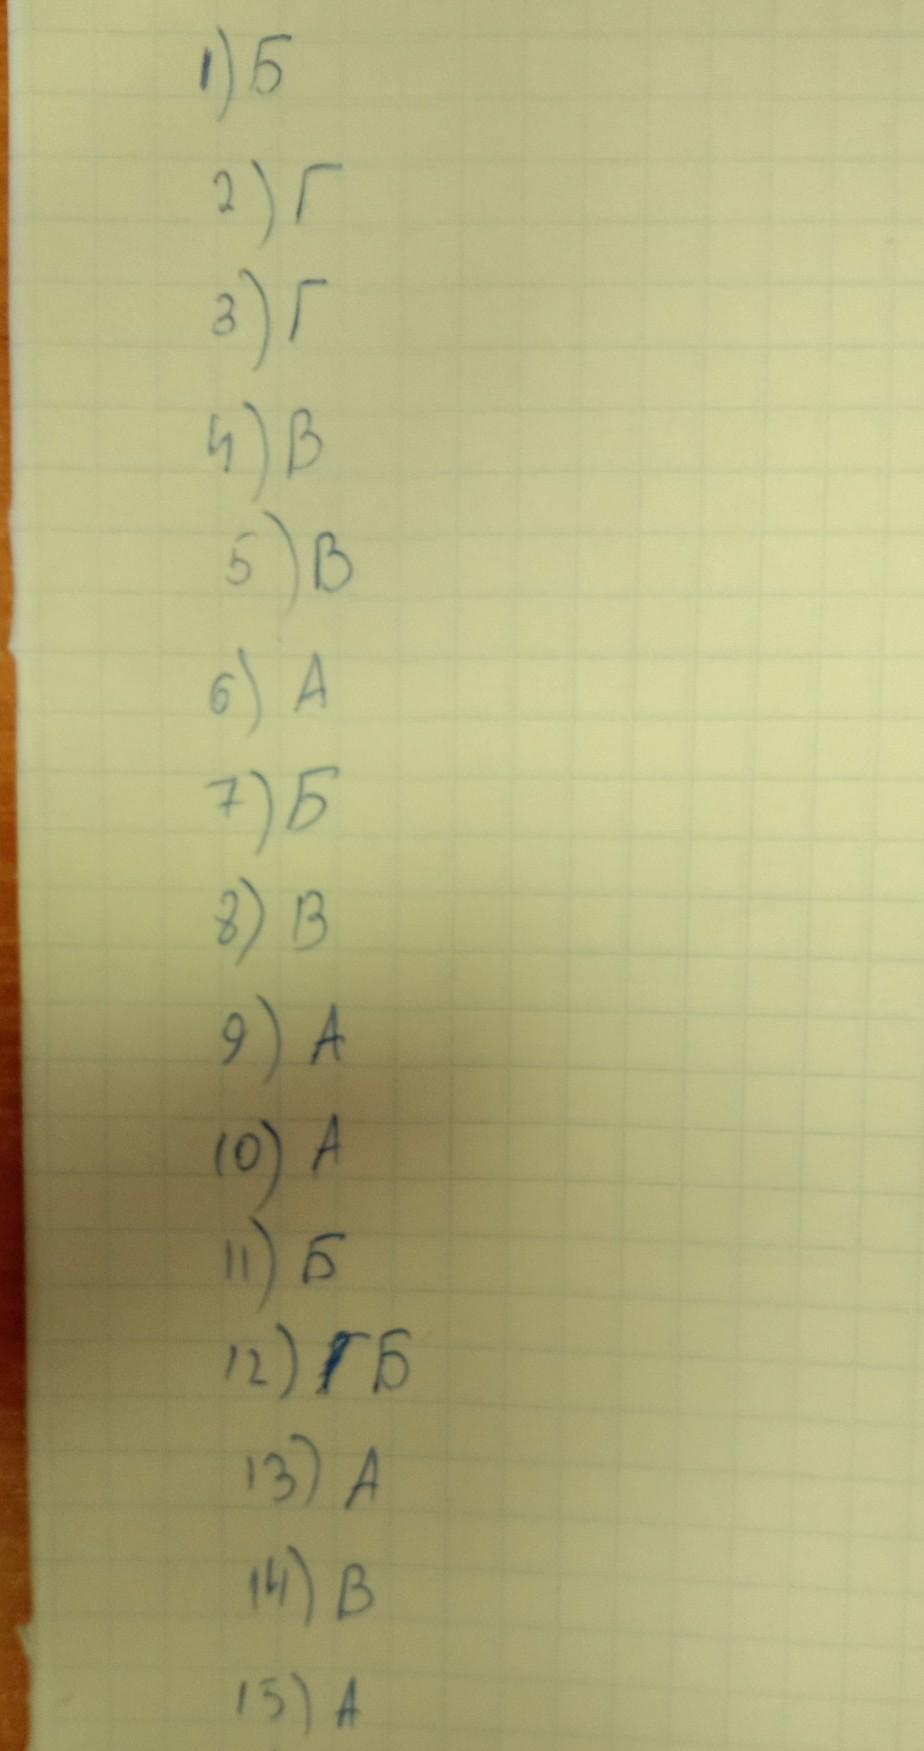 1) Б
2) Г
3) Г
4) В
5) В
6) А
7) Б
8) В
9) А
10) А
11) Б
12) Б
13) А
14) В
15) А